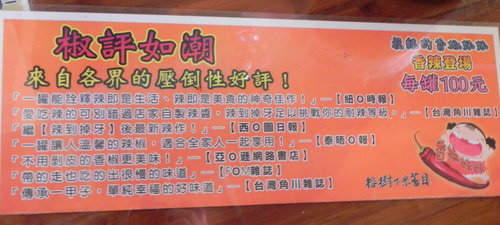 椒評如潮
來自各界的壓倒性好評！
「一罐能詮釋辣即是生活、辣即是美食的神奇佳作！」—【紐O時報】
「愛吃辣的可別錯過店家自製辣醬，辣到掉牙足以挑戰你的耐辣等級。」—【台灣角川雜誌】
「繼【辣到掉牙】後最新辣作！」—【西O圖日報】
「一罐讓人溫馨的辣椒，適合全家人一起享用！」—【泰晤O報】
「不用剝皮的香椒更美味！」—【亞O遜網路書店】
「帶的走也吃的出很慢的味道」—【FOM雜誌】
「傳承一甲子，單純幸福的好味道」—【台灣角川雜誌】
香辣登場
每罐100元
榕樹下米苔目